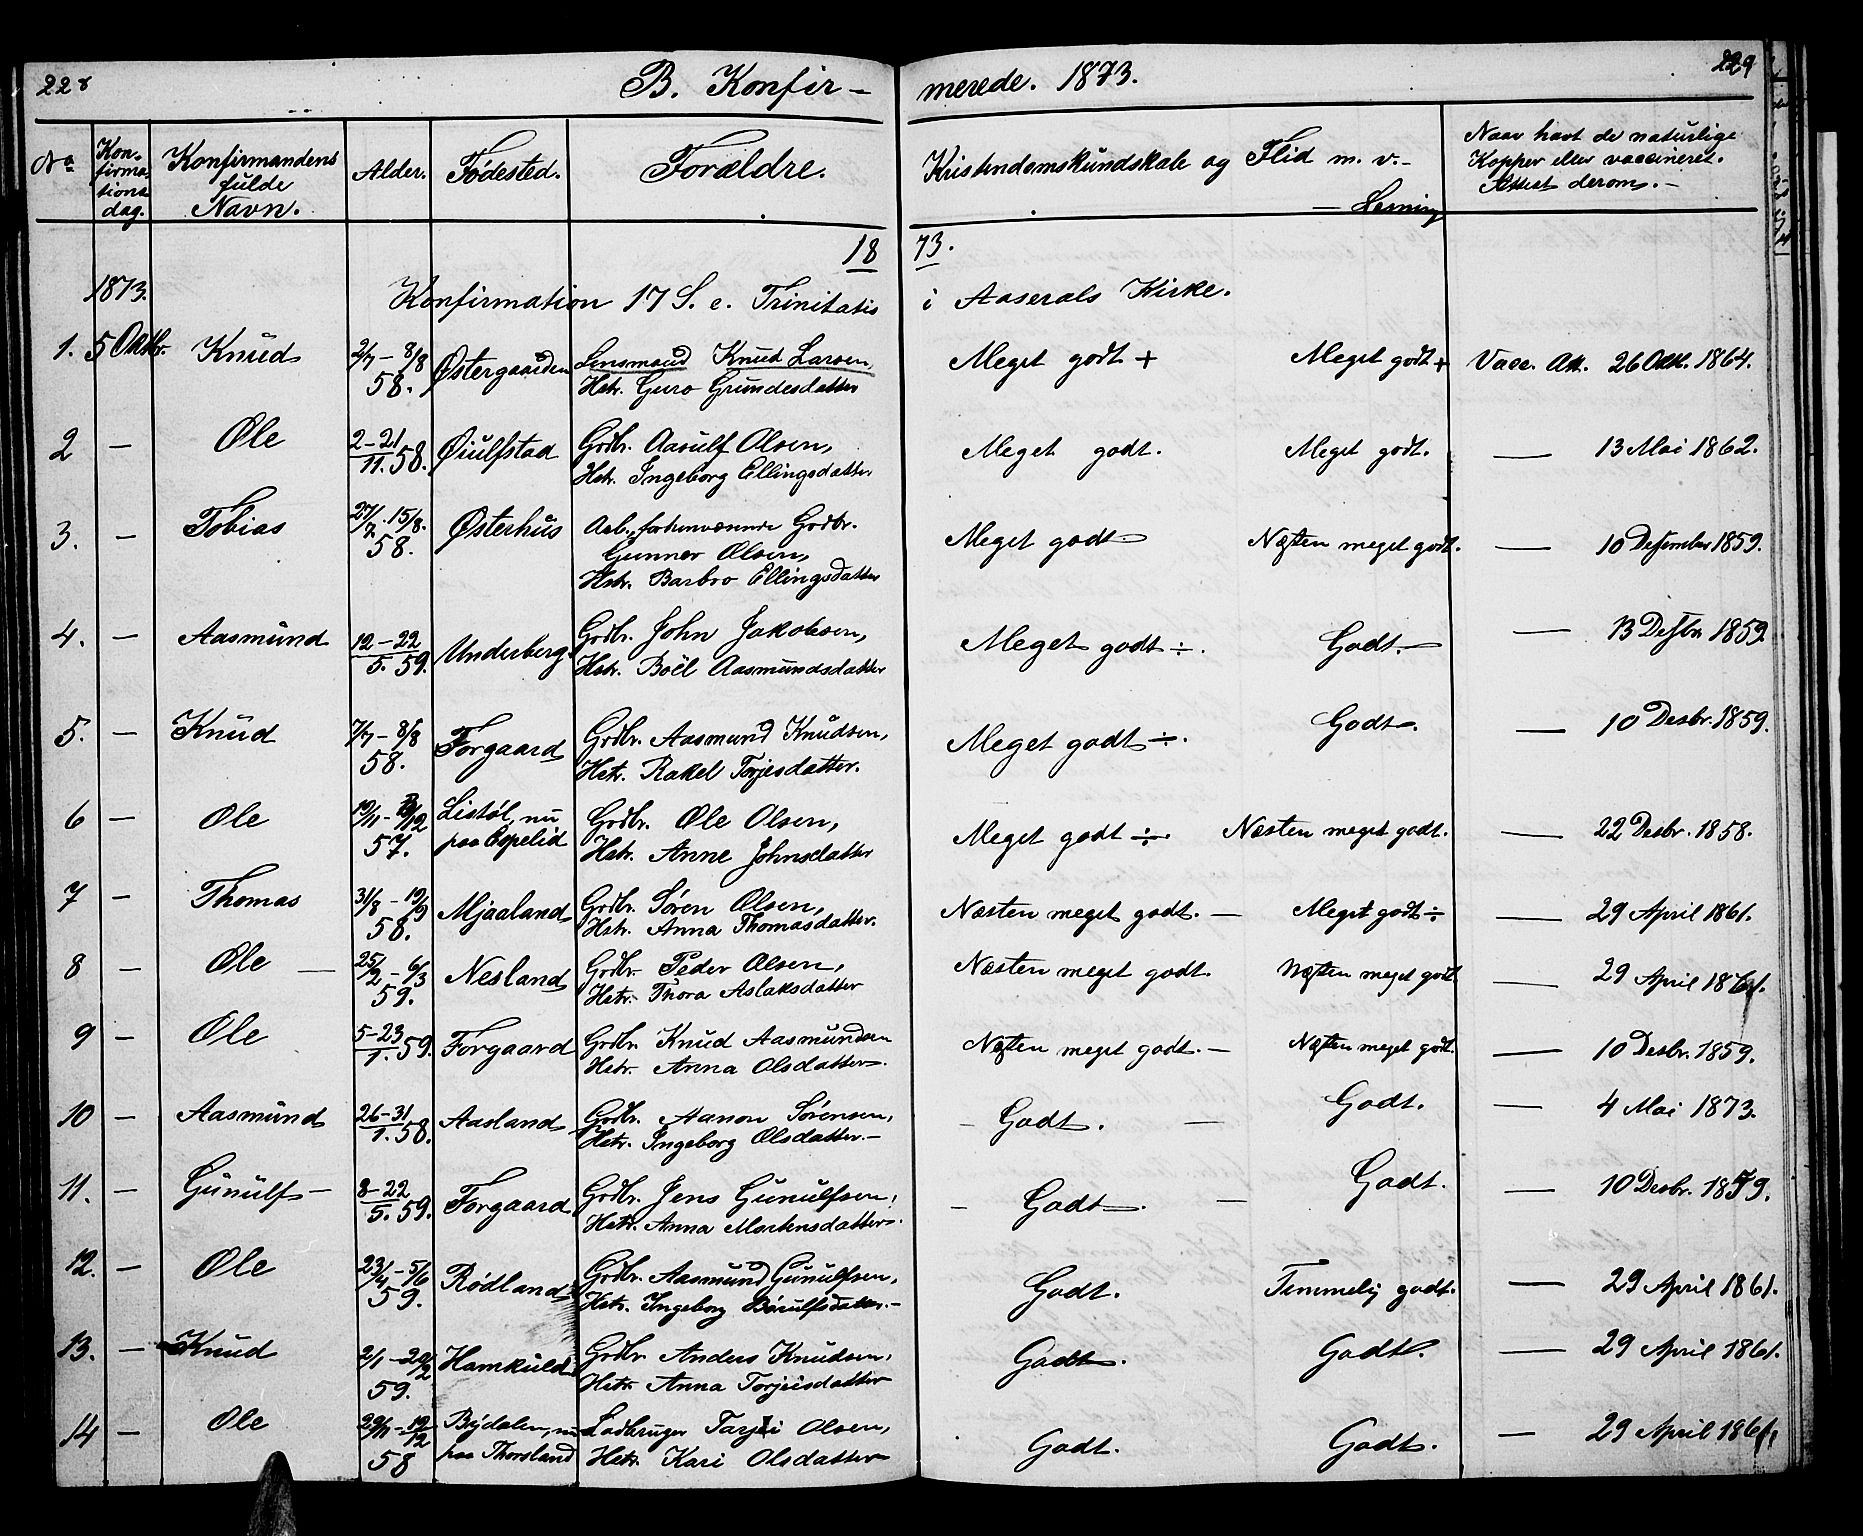 228
B. Konfir-
merede. 1873.
229
No
Kon-
firma-
tions
dag.
Konfirmandens
fulde
Navn.
Alder.
Fødested.
Forældre.
Kristendomskundskab og Flid m. v.-
- Læsning
Naar havt de naturlige
Kopper eller vaccineret.
Attest derom.-
18
73.
1873.
Konfirmation 17 S. e. Trinitatis
i Aaserals Kirke.
1. 5 Oktbr. Knud 2/7-8/8 58. Østergaarden Lensmand Knud Larsen, Meget godt + Meget godt + Vacc. Att. 26 Oktb. 1864.
Hstr. Guro Grundesdatter
2 - Ole 2-21/11.58. Øiulfstad Grdbr. Aasulf Olsen, Meget godt. Meget godt. — 13 Mai 1862.
Hstr. Ingeborg Ellingsdatter
3. - Tobias 27/7.15/8. 58. Østerhus Arb., forhenværende Grdbr. Meget godt Næsten meget godt. — 10 Desember 1859.
Gunner Olsen,
Hstr. Barbro Ellingsdatter
4. - Aasmund 12-22/5. 59. Underberg. Grdbr. John Jakobsen, Meget godt ÷. Godt. — 13 Desbr 1859.
Hstr. Boël Aasmundsdatter
5. - Knud 7/7-8/8 58. Forgaard Grdbr. Aasmund Knudsen, Meget godt ÷. Godt. — 10 Desbr. 1859.
Hstr. Rakel Torjesdatter.
6 - Ole 19/11 57. Listøl, nu Grdbr. Ole Olsen, Meget godt ÷. Næsten meget godt. — 22 Desbr. 1858.
paa Espelid Hstr. Anne Johnsdatter
7 - Thomas 31/8-19/9 58. Mjaaland Grdbr. Søren Olsen, Næsten meget godt. - Meget godt ÷ — 29 April 1861.
Hstr. Anna Thomasdatter.
8 - Ole - 25/2-6/3 59. Nesland Grdbr. Peder Olsen, Næsten meget godt. Næsten meget godt — 29 April 1861.
Hstr. Thora Aslaksdatter
9 - Ole 5-23/1.59. Forgaard Grdbr. Knud Aasmundsen Næsten meget godt. - Næsten meget godt. — 10 Desbr. 1859.
Hstr. Anna Olsdatter.
10 - Aasmund 26-31/1.58. Aasland Grdbr. Hanon Sørensen, - Godt. - Godt. — 4 Mai 1873.
Hstr. Ingeborg Olsdatter.-
11. - Gunulf - 8-22/5.59. Forgaard Grdbr. Jens Gunulfsen, - Godt. - Godt. — 10 Desbr. 1859.
Hstr. Anna Mortensdatter.
12. - Ole 23/4-5/6 59. Rødland Grdbr. Aasmund Gunulfsen, Godt. Temmelig godt. — 29 April 1861.
Hstr. Ingeborg
13. - Knud 2/1 59. Hamkuld Grdbr. Anders Knudsen, Godt. Godt. — 29 April 1861.
Hstr Anna Torjusdatter
14 - Ole 29/11-19/12 58 Bydalen, nu Ladbruger Tarjei Olsen, Godt. Godt. — 29 April 1861
paa Thorsland Hstr. Kari Olsdatter